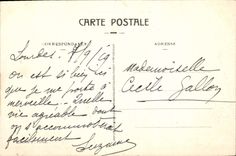 CARTE POSTALE
CORRESPONDANCE
ADRESSE
Lourdes 8/9/19
on est si bien ici
que je me porte à
merveille. Quelle
vie agréable dont
on s'accommoderait
facilement
Suzanne
Mademoiselle
Cécile Gallon